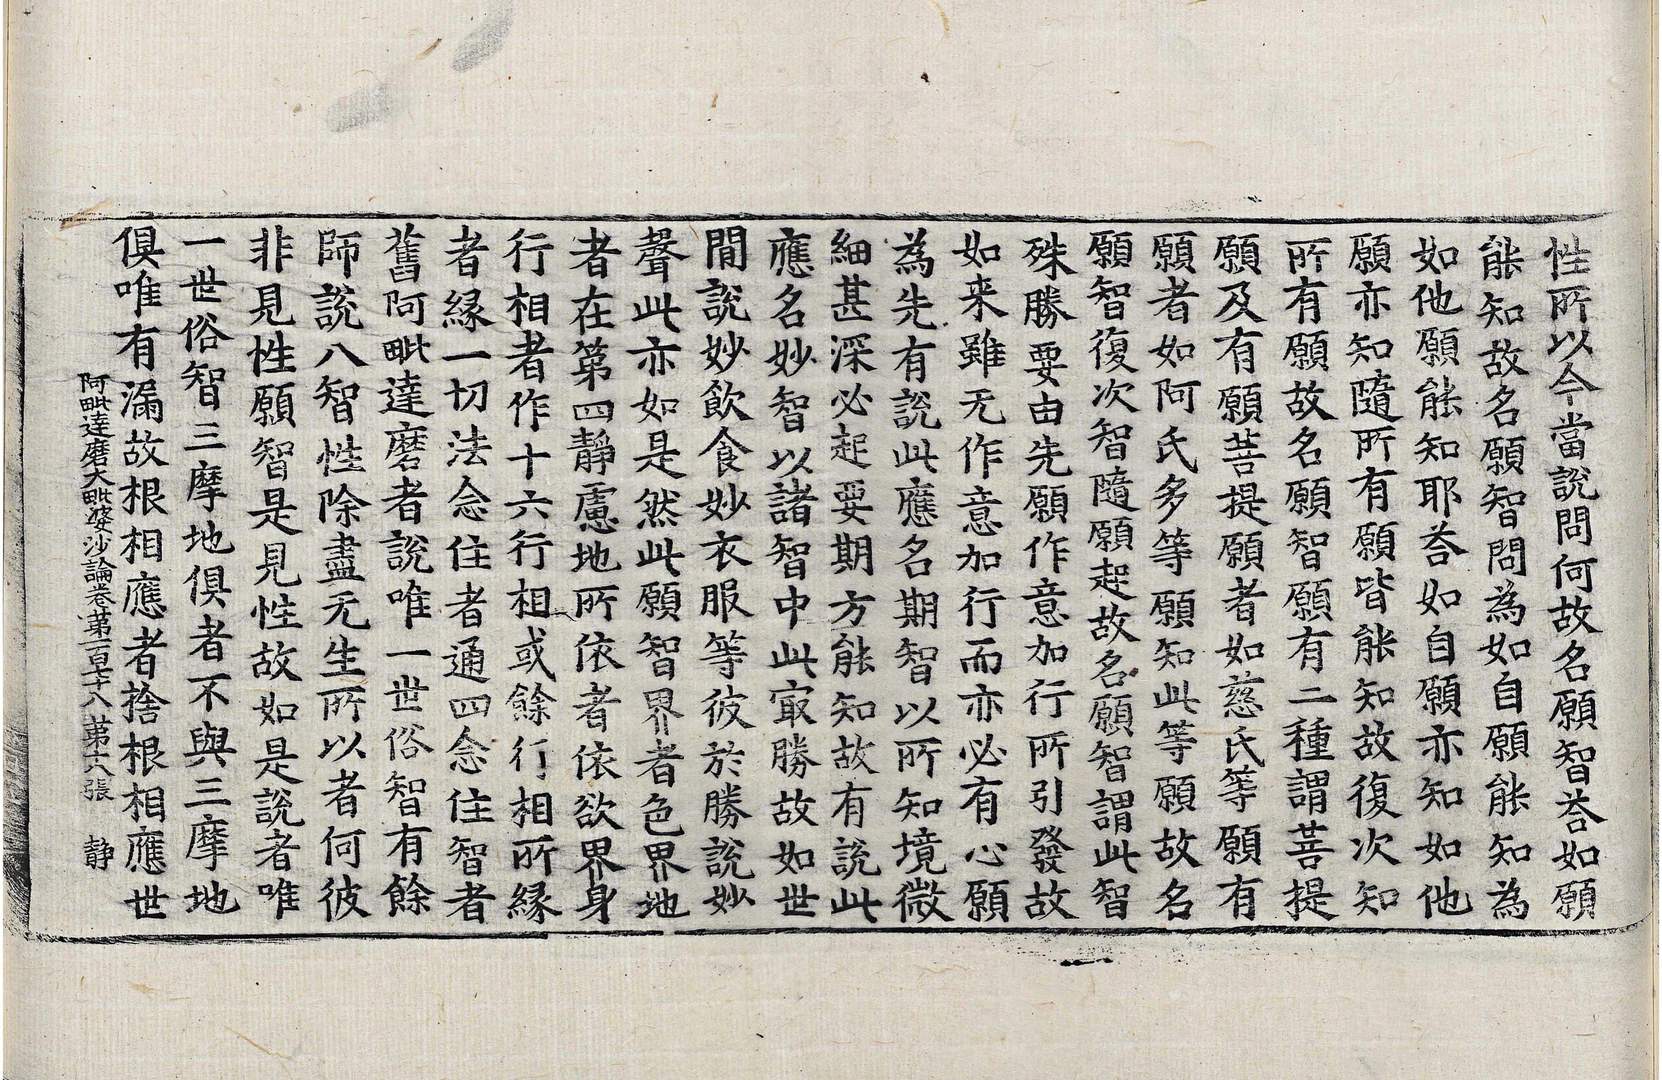 性所以今當說問何故名願智荅如願
能知故名願智問為如自願能知為
如他願能知耶荅如自願亦知如他
願亦知隨所有願皆能知故復次知
所有願故名願智願有二種謂菩提
願及有願菩提願者如慈氏等願有
願者如阿氏多等願知此等願故名
願智復次智隨願起故名願智謂此智
殊勝要由先願作意加行所引發故
如来雖无作意加行而亦必有心願
為先有說此應名期智以所知境微
細甚深必起要期方能知故有說此
應名妙智以諸智中此㝡勝故如世
間說妙飲食妙衣服等彼於勝說妙
聲此亦如是然此願智界者色界地
者在第四靜慮地所依者依欲界身
行相者作十六行相或餘行相所緣
者緣一切法念住者通四念住智者
舊阿毗達磨者說唯一世俗智有餘
師說八智性除盡无生所以者何彼
非見性願智是見性故如是說者唯
一世俗智三摩地俱者不與三摩地
俱唯有漏故根相應者捨根相應世
阿毗達磨大毗婆沙論卷第一百七十八 第六張 靜